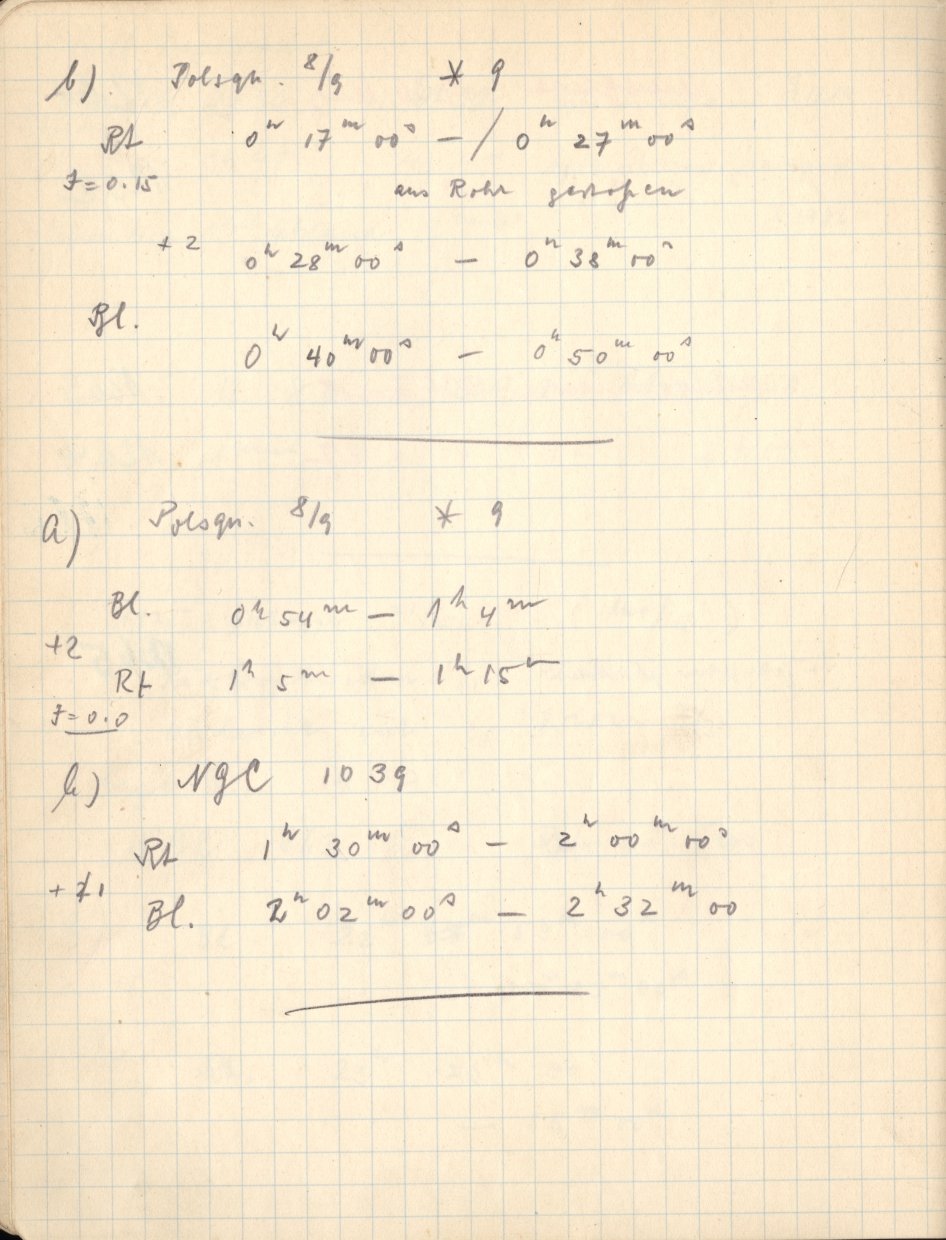 b) Polsqu. 8/9 * 9
Rt 0h 17m 00s – / 0h 27m 00s
F=0.15 aus Rohr gestoßen
+2 0h 28m 00s – 0h 38m 00s
Bl.
0h 40m 00s – 0h 50m 00s
a) Polsqu. 8/9 * 9
Bl. 0h 54m – 1h 4m
+2
Rt 1h 5m – 1h 15m
F=0.0
b) NGC 1039
Rt 1h 30m 00s – 2h 00m 00s
+1
Bl. 2h 02m 00s – 2h 32m 00